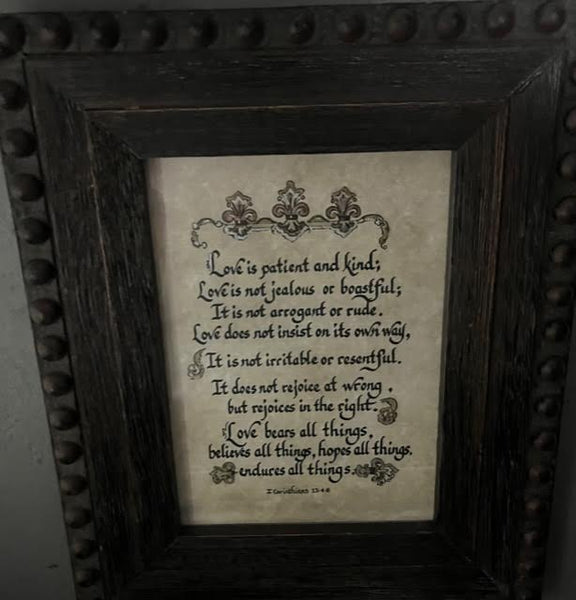 Love is patient and kind;
Love is not jealous or boastful;
It is not arrogant or rude.
Love does not insist on its own way,
It is not irritable or resentful.
It does not rejoice at wrong,
but rejoices in the right.
Love bears all things,
believes all things, hopes all things,
endures all things.
I Corinthians 13:4-8